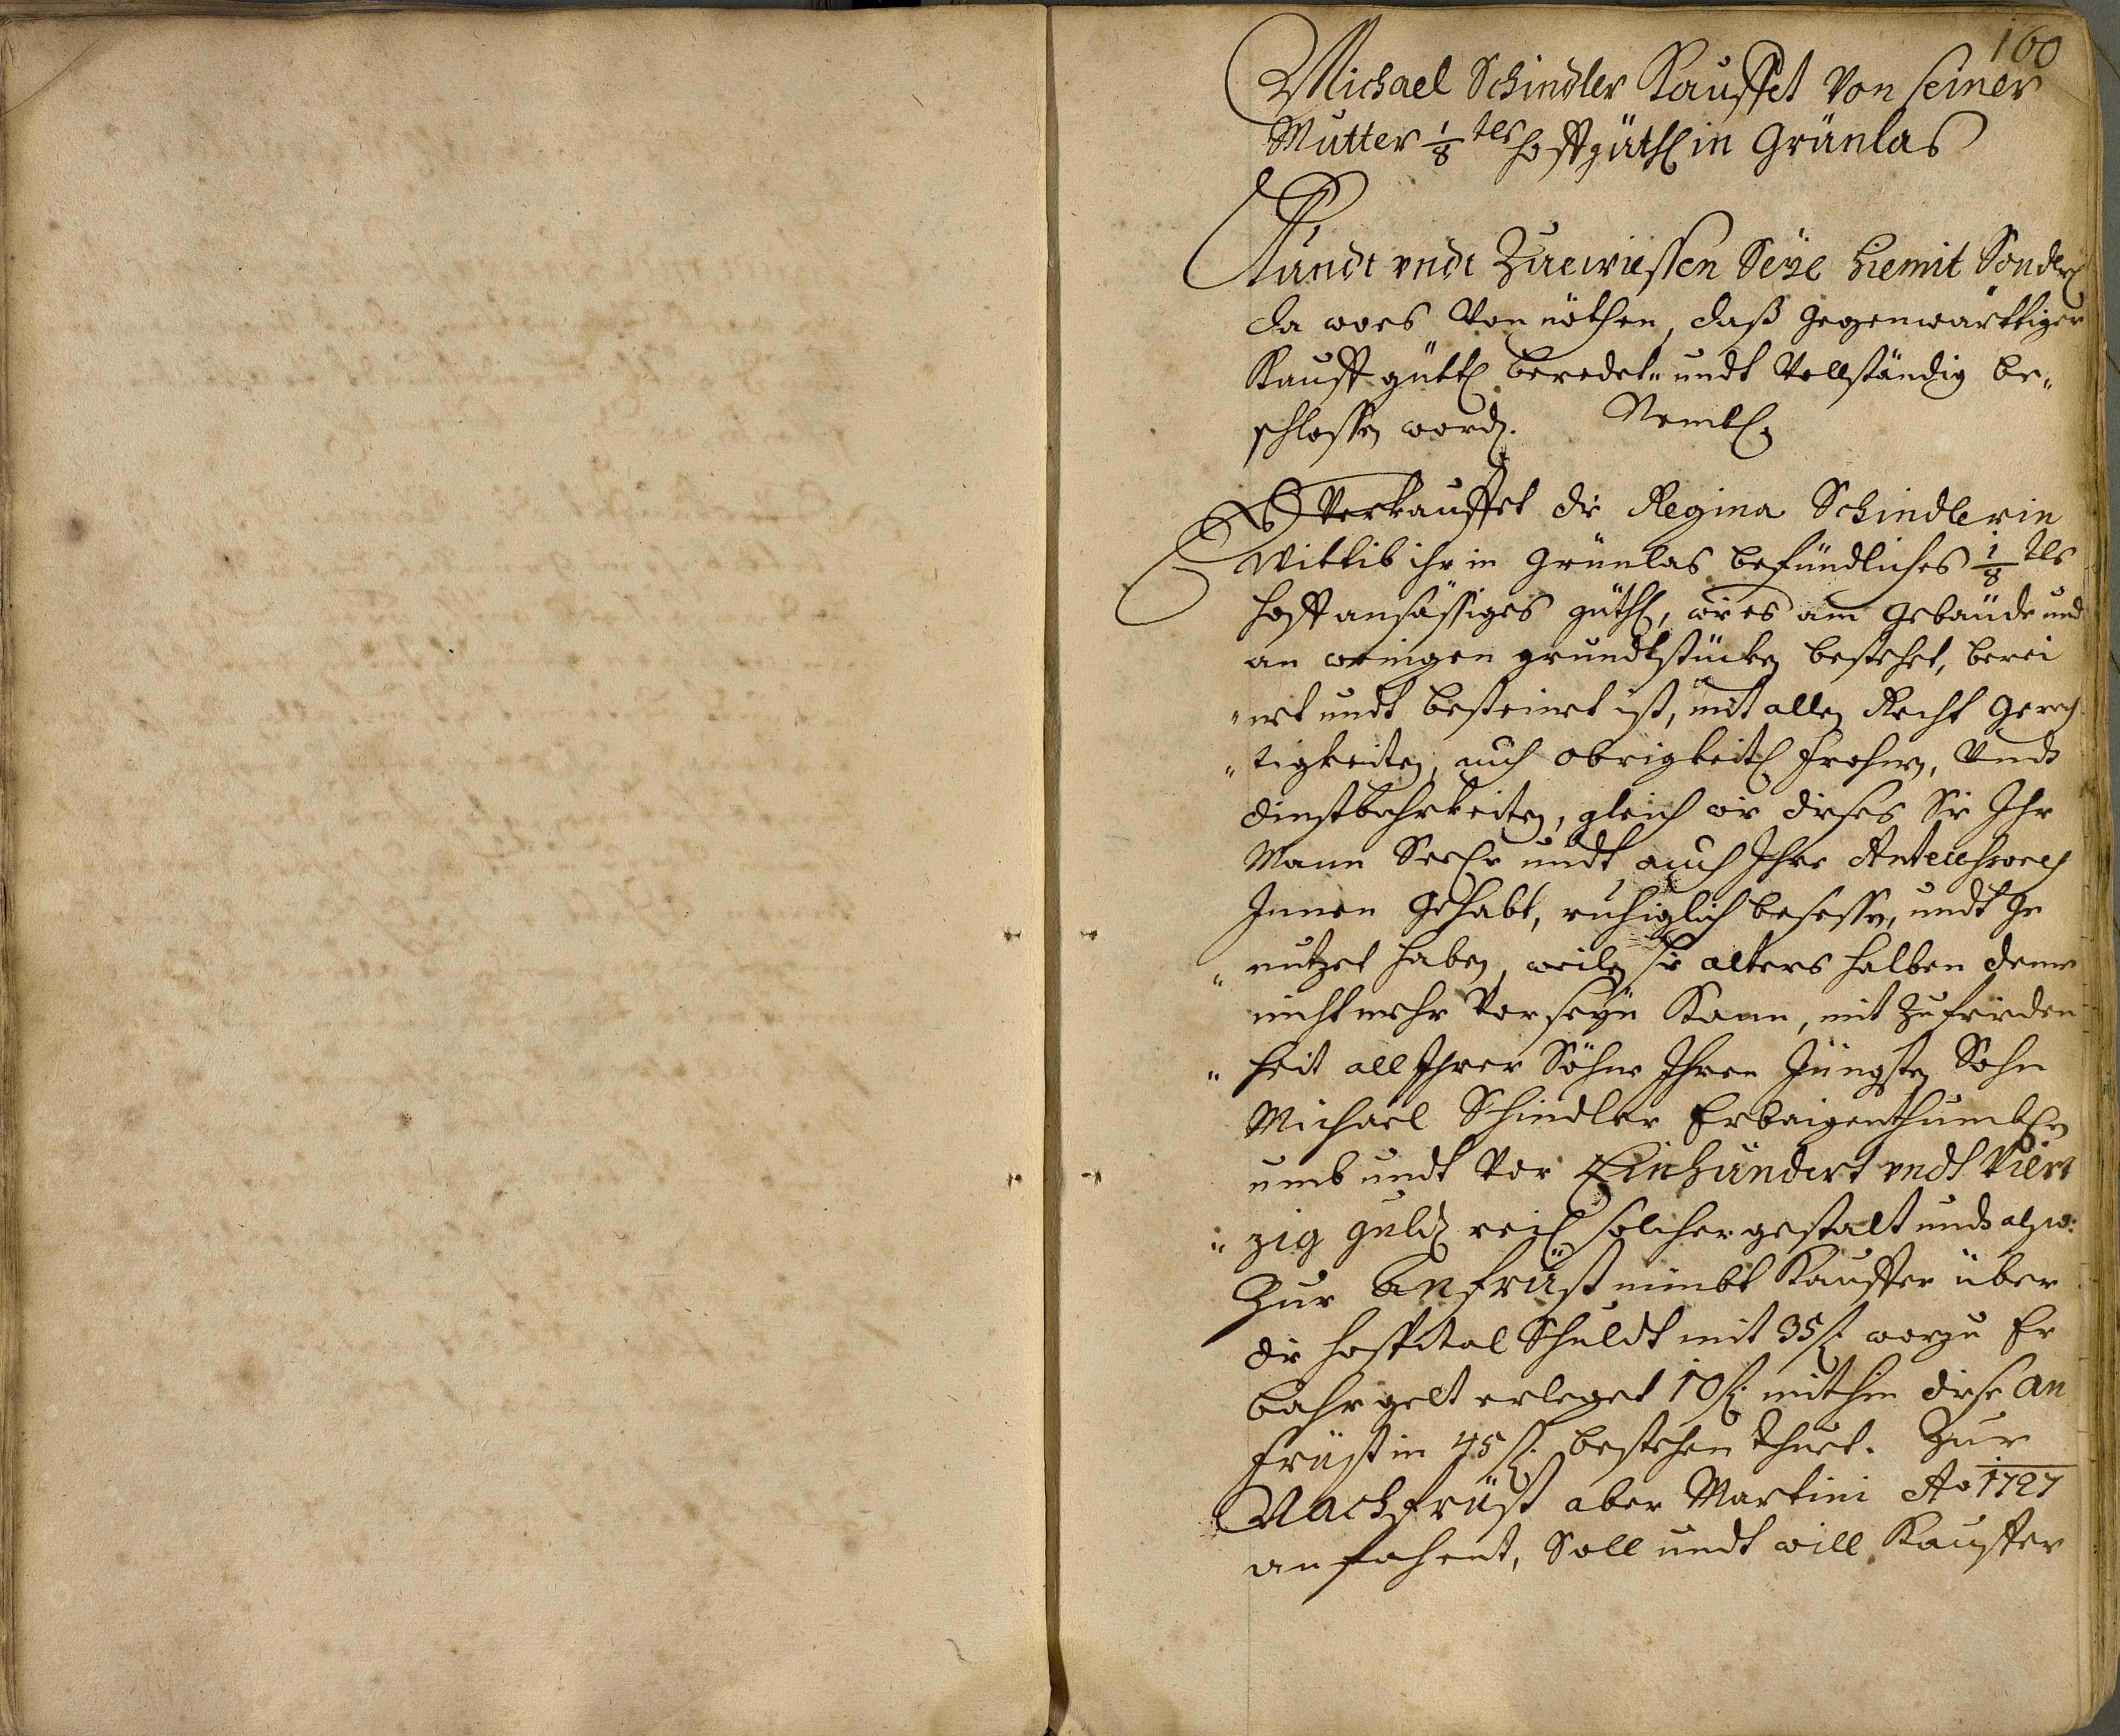 160
Michael Schindler Kauffet Von seiner
Mutter 1/8 tls hoffgüthl in Grünlas
Kundt vndt Zuewießen Seÿe hiemit Sonderl
da woes Von nöthen, daß gegenwärttiger
Kauff güttl beredet- undt Vollständig be-
schlossen word. Nembl.
Es Verkauffet die Regina Schindlerin
Wittib ihr in Grünlas befündliches 1/8 tls
hoff ansässiges güthl, wie es am gebäude und
an weinigen grundtstücken bestehet, berei
"net undt besteinet ist, mit allen Recht gerech
"tigkeiten, auch obrigkeitl frohnen, Undt
dinstbahrkeiten, gleich wie dieses Sie Ihr
Mann Seel undt auch Ihre Antecessores
Innen gehabt, ruhiglich besessen, undt ge
"nutzet haben, weilen sie alters halben deme
nicht mehr Vor seÿn Kann, mit Zufrieden
"heit all Ihrer Söhne Ihren Jüngsten Sohn
Michael Schindler Erbeigenthumblen
umb undt Vor Einhundert vndt Viert
"zig guld reil solcher gestalt undt also:
Zur anfrüst nimbt Kauffer über
die hospital Schuldt mit 35 f. worzu Er
bahr gelt erleget 10 f. mithin diese an
früst in 45 f. bestehen thuet. Zur
Nachfrüst aber Martini Ao 1727
anfahent, Soll undt will Kauffer